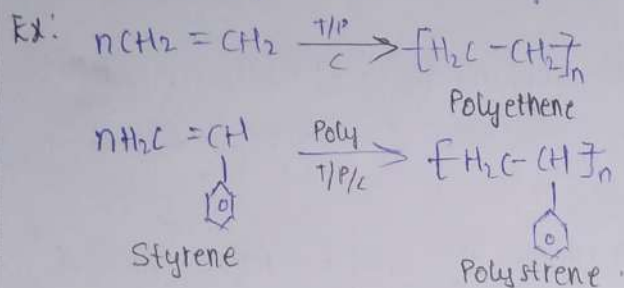 Ex: nCH2 = CH2 T/P C → -[H2C - CH2]-n
Polyethene
nH2C = CH Poly T/P/C → -[H2C - CH]-n
Styrene
Polystrene.